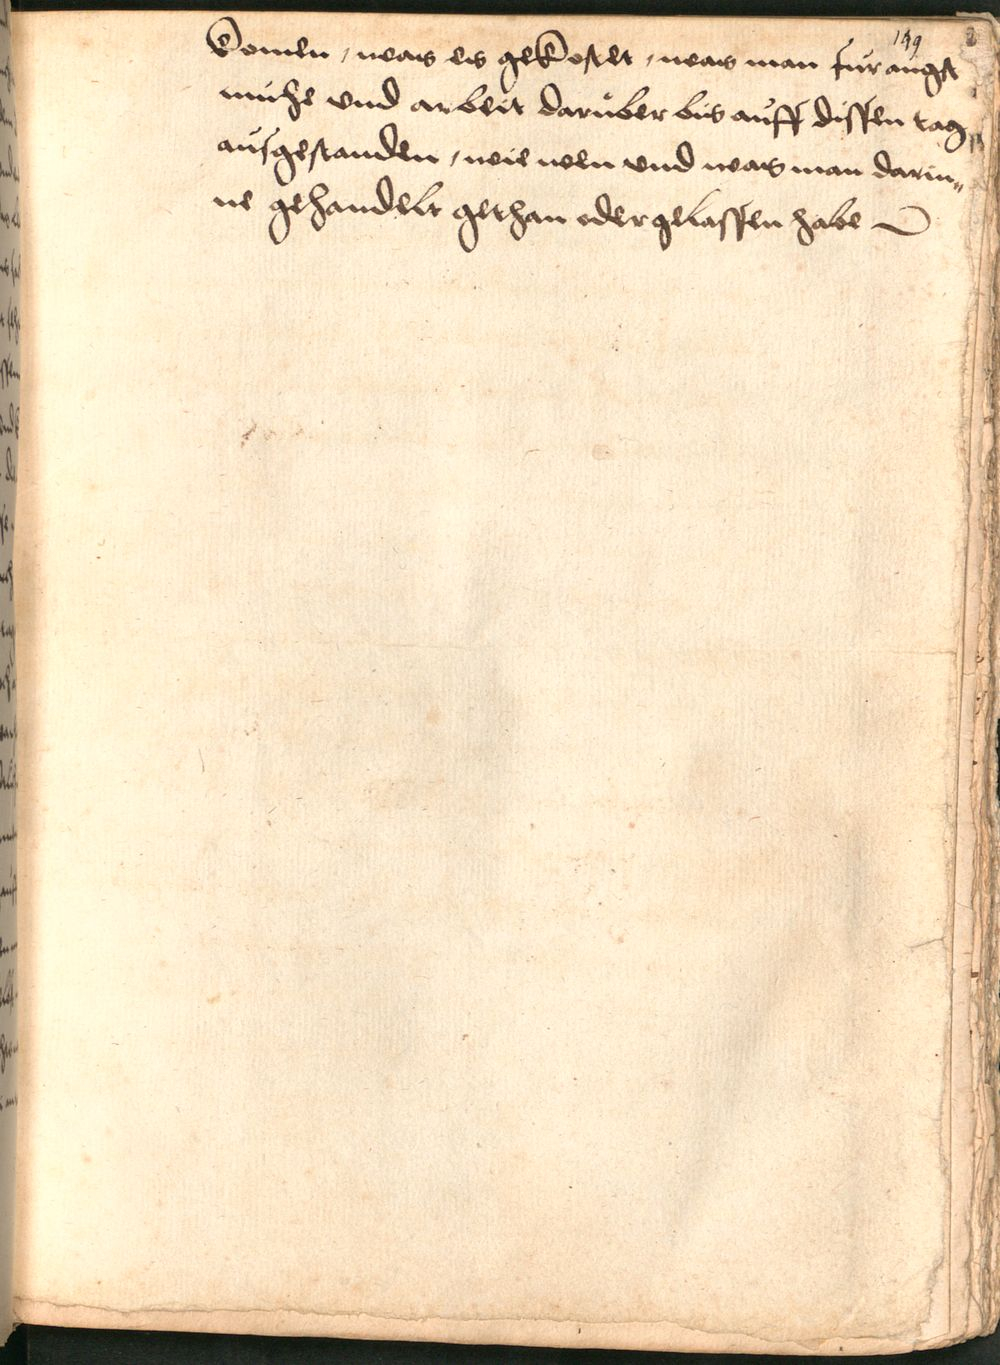 149
komen, was es gekostet, was man fur angst
muhe vnd arbeit daruber bis auff dissen tag
ausgestanden, wie wen vnd was man darin„
ne gehandelt gethan oder gelassen habe